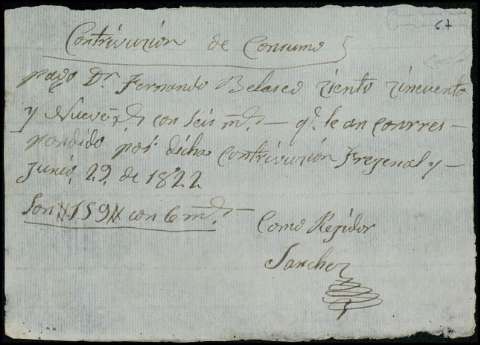 67
Contrivucion de Consumo
pago Dn. Fernando Belasco ziento zincuenta
y Nueve rs. con seis ms. – qe. le an corres –
pondido por dicha Contrivucion Frejenal y –
Junio, 29, de 1822
Son //159// con 6 ms. –
Como Rejidor
Sanchez